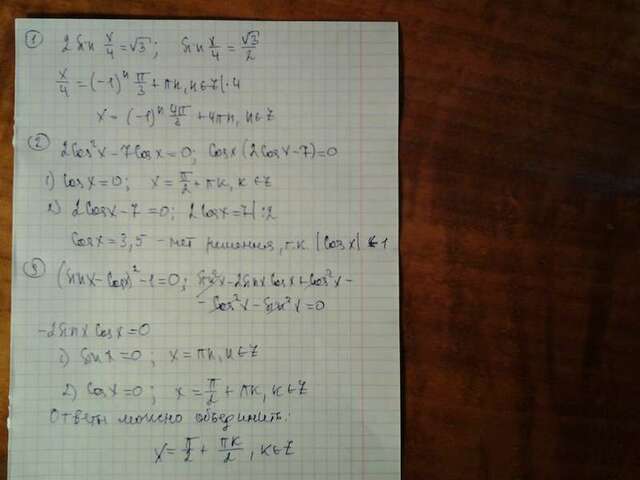 ① 2 sin x/4 = √3 ; sin x/4 = √3/2
x/4 = (-1)ⁿ π/3 + πn, n∈Z | ·4
x = (-1)ⁿ 4π/3 + 4πn, n∈Z
② 2cos²x - 7cosx = 0 ; cosx (2cosx - 7) = 0
1) cosx = 0 ; x = π/2 + πk, k∈Z
2) 2cosx - 7 = 0 ; 2cosx = 7 | :2
cosx = 3,5 - нет решения, т.к. |cosx| ≤ 1
③ (sinx - cosx)² - 1 = 0 ; sin²x - 2sinxcosx + cos²x -
- cos²x - sin²x = 0
-2sinxcosx = 0
1) sinx = 0 ; x = πn, n∈Z
2) cosx = 0 ; x = π/2 + πk, k∈Z
Ответы можно объединить:
x = π/2 + πk/2, k∈Z